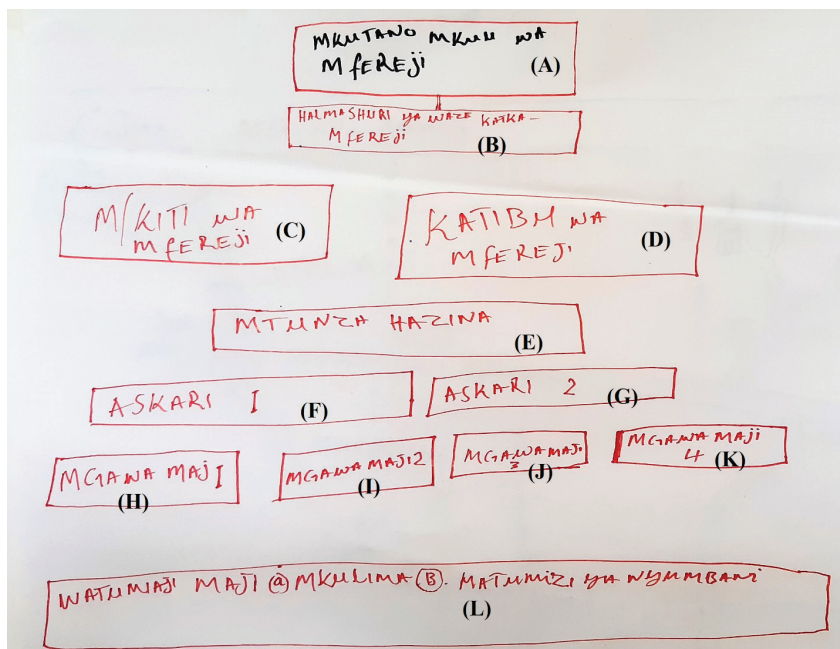 MKUTANO MKUU WA
MFEREJI (A)
HALMASHURI YA WAZE KATKA-
MFEREJI (B)
M/KITI WA
MFEREJI (C)
KATIBU WA
MFEREJI (D)
MTUNZA HAZINA
(E)
ASKARI I (F)
ASKARI 2 (G)
MGAWA MAJI
(H)
MGAWA MAJI 2
(I)
MGAWA MAJI
3 (J)
MGAWA MAJI
4 (K)
WATUMIAJI MAJI @ MKULIMA Ⓑ. MATUMIZI YA NYUMBANI
(L)